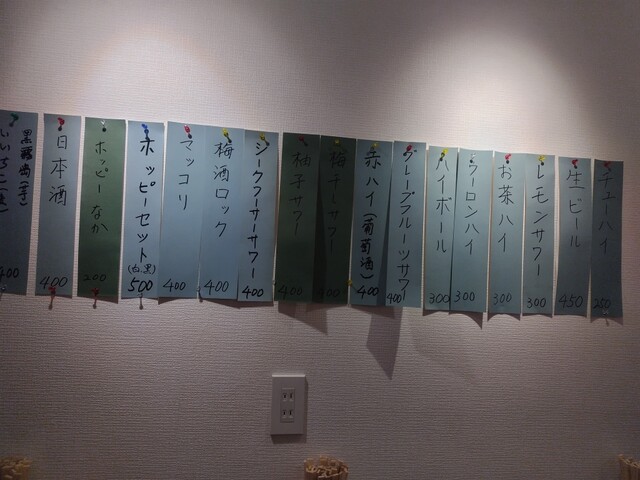 チューハイ 250
生ビール 450
レモンサワー 300
お茶ハイ 300
ウーロンハイ 300
ハイボール 300
グレープフルーツサワー 400
赤ハイ(葡萄酒) 400
梅干サワー 400
柚子サワー 400
シークワーサーサワー 400
梅酒ロック 400
マッコリ 400
ホッピーセット(白.黒) 500
ホッピー なか 200
日本酒 400
400